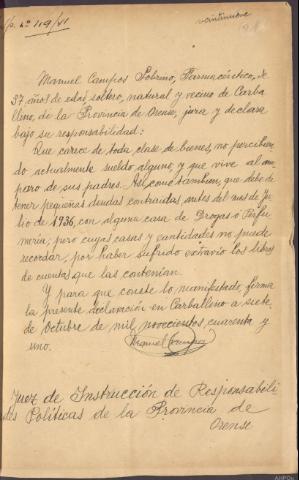 veintinueve
Manuel Campos Sobrino, Farmacéutico, de
37 años de edad, soltero, natural y vecino de Carba
llino, de la Provincia de Orense, jura y declara
bajo su responsabilidad:
Que carece de toda clase de bienes, no percibien
do actualmente sueldo alguno y que vive al am
paro de sus padres. Así como tambien, que debe de
tener pequeñas deudas contraidas antes del mes de Ju
lio de 1936, con alguna casa de Drogas o Perfu
meria; pero cuyas casas y cantidades no puede
recordar, por haber sufrido extravio los libros
de cuentas que las contenian.
Y para que conste lo manifestado, firma
la presente declaración en Carballino a siete
de Octubre de mil novecientos cuarenta y
uno.
Manuel Campos
Juez de Instrucción de Responsabili
dades Políticas de la Provincia de
Orense